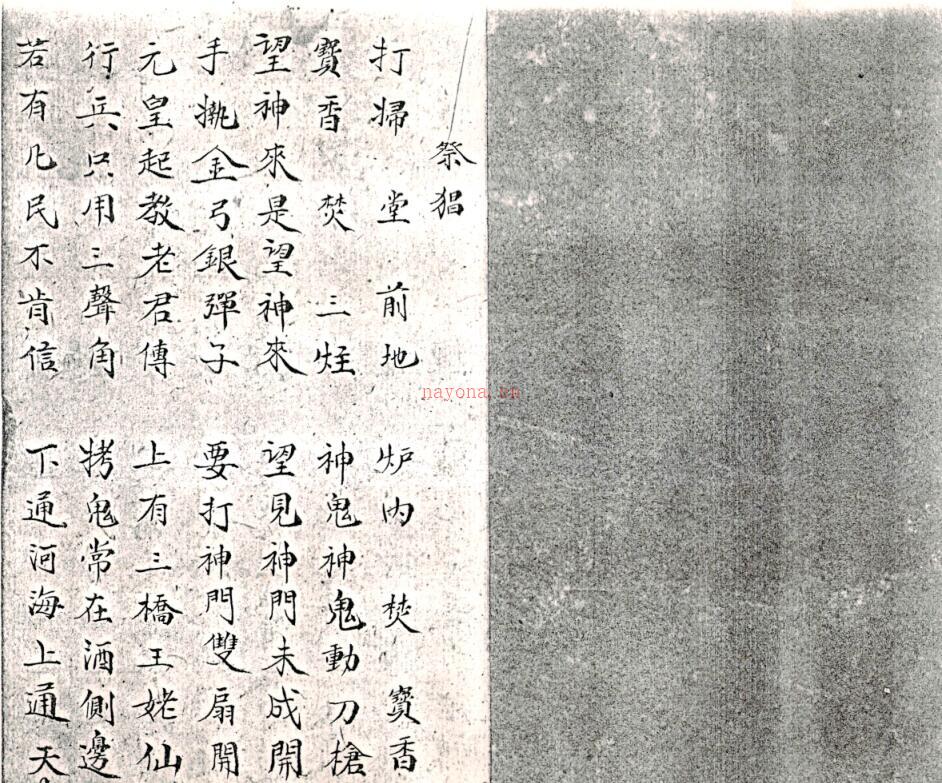 祭猖
打掃堂前地 炉内焚寶香
寶香焚三炷 神鬼神鬼動刀槍
望神來是望神來 望見神門未成開
手執金弓銀彈子 要打神門雙扇開
元皇起教老君傳 上有三橋王姥仙
行兵只用三聲角 拷鬼常在酒側邊
若有凡民不肯信 下通河海上通天
nayona.cn